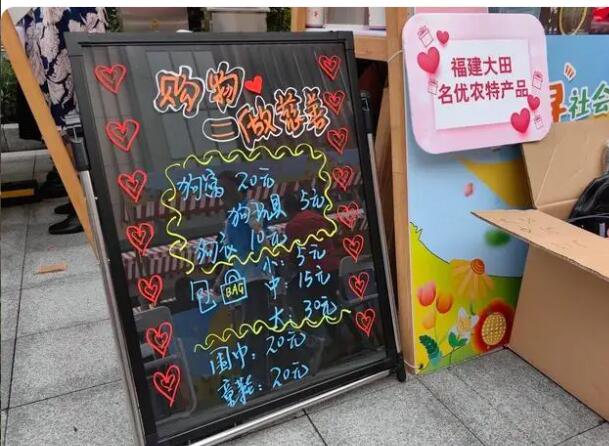 购物
=做慈善
狗窝 20元
狗玩具 5元
狗衣 10元
BAG
小: 5元
中: 15元
大: 30元
围巾: 20元
童鞋: 20元
福建大田
名优农特产品
社会